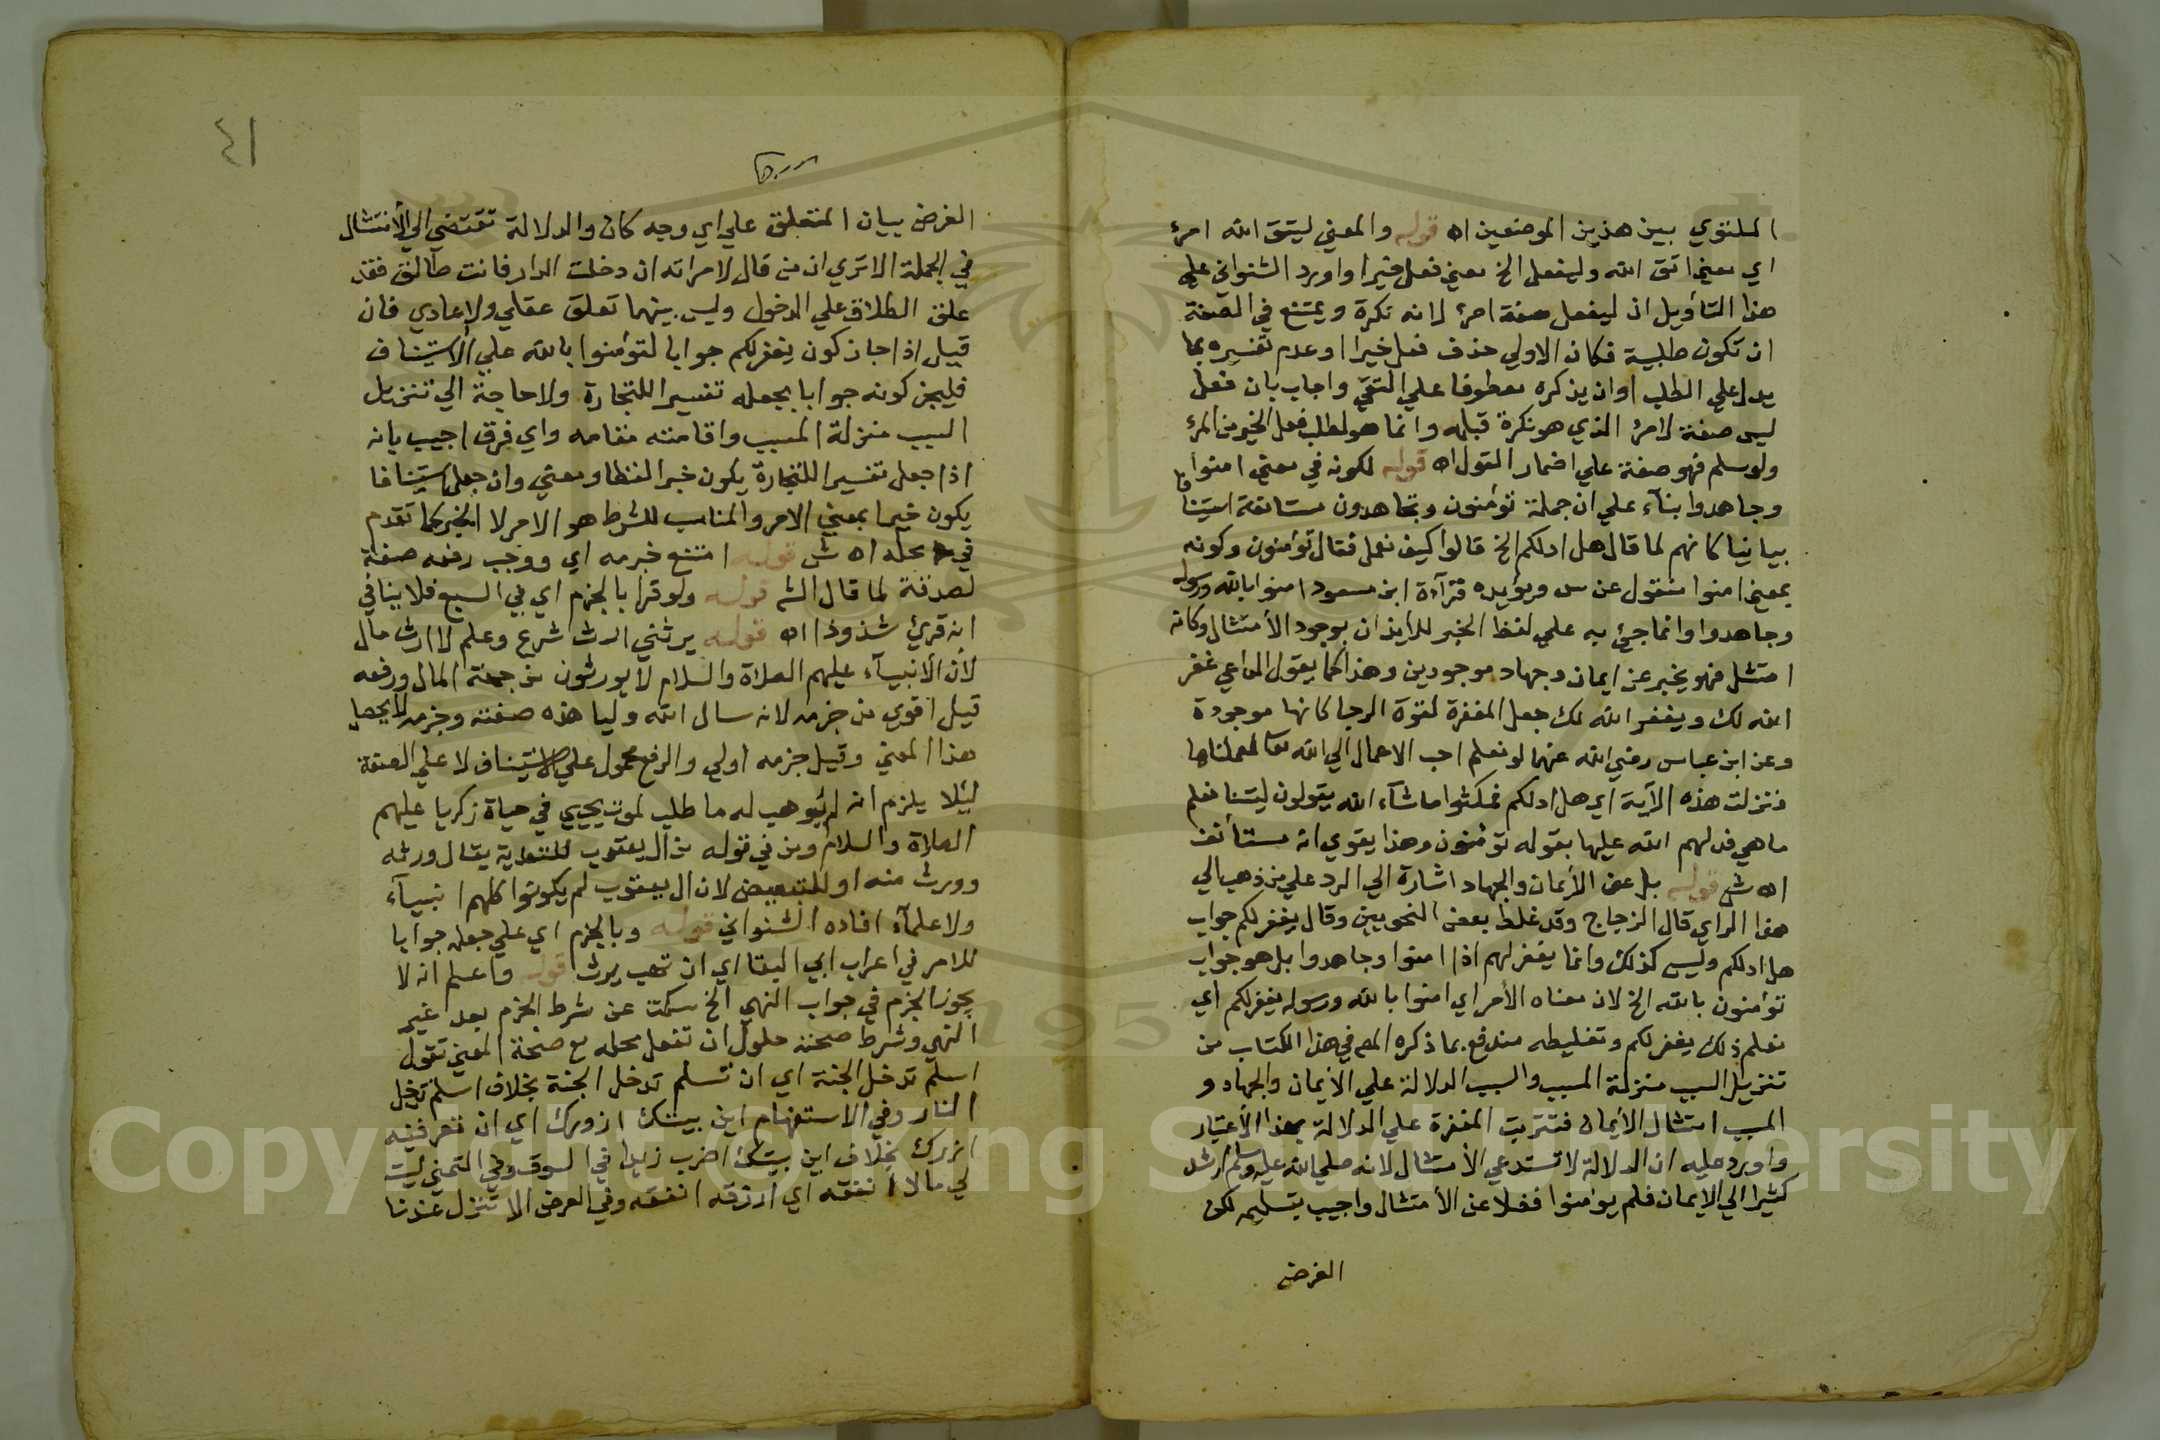 الملتوي بين هذين الموضعين اه قوله والمعني ليتق الله امرئ
اي معني اتق الله وليفعل الخ معني فعل خيرا واورد الشنواني علي
هذا التأويل اذ ليفعل صفة امرئ لانه نكرة ويمتنع في الصفة
ان تكون طلبية فكان الاولي حذف فعل خيرا وعدم تفسيره بما
يدل علي الطلب اوان يذكره معطوفا علي اتقي واجاب بان فعل
ليس صفة لامرئ الذي هو نكرة قبله وانما هو لطلب فعل الخير من المرئ
ولوسلم فهو صفة علي اضمار القول اه قوله لكونه في معني امنوا
وجاهدوا بنآء علي ان جملة تؤمنون وتجاهدون مستانفة استينافا
بيانيا كانهم لما قال هل ادلكم الخ قالوا كيف نعمل فقال تؤمنون وكونه
بمعني امنوا منقول عن س ويؤيده قرآءة ابن مسعود امنوا بالله ورسوله
وجاهدوا وانما جئ به علي لفظ الخبر للايذان بوجود الأمتثال وكانه
امتثل فهو يخبر عن ايمان وجهاد موجودين وهذا كما يقول الداعي غفر
الله لك ويغفر الله لك جعل المغفرة لقوة الرجا كانها موجودة
وعن ابن عباس رضي الله عنهما لو نعلم احب الاعمال الي الله تعا لعملناها
فنزلت هذه الآية اي هل ادلكم فمكثوا ماشآء الله يقولون ليتنا نعلم
ماهي فدلهم الله عليها بقوله تؤمنون وهذا يقوي انه مستأنف
اه ش قوله بل عن الأيمان والجهاد اشارة الي الرد علي من ذهب الي
هذا الراي قال الزجاج وقد غلط بعض النحويين وقال يغفر لكم جواب
هل ادلكم وليس كذلك وانما يغفر لهم اذا امنوا وجاهدوا بل هو جواب
تؤمنون بالله الخ لان معناه الأمر اي امنوا بالله ورسوله يغفر لكم اي
فعلم ذلك يغفر لكم وتغليطه مندفع بما ذكره المص في هذا الكتاب من
تنزيل السبب منزلة المسبب والسبب الدلالة علي الأيمان والجهاد و
المسبب امتثال الأيمان فترتبت المغفرة علي الدلالة بهذا الأعتبار
واورد عليه ان الدلالة لا تستدعي الأمتثال لانه صلي الله عليه وسلم ارشد
كثيرا الي الايمان فلم يؤمنوا فضلا عن الأمتثال واجيب بتسليمه لكن
الغرض
٤١
الغرض بيان المتعلق علي اي وجه كان والدلالة تقتضي الي الأمتثال
في الجملة الا تري ان من قال لامراته ان دخلت الدار فانت طالق فقد
علق الطلاق علي الدخول وليس بينهما تعلق عقلي ولا عادي فان
قيل اذا جاز كون يغفر لكم جوابا لتؤمنوا بالله علي الأستيناف
فليجز كونه جوابا بجعله تفسيرا للتجارة ولا حاجة الي تنزيل
السبب منزلة المسبب واقامته مقامه واي فرق اجيب بانه
اذا جعل تفسيرا للتجارة يكون خبرا لفظا ومعني وان جعل استينافا
يكون خبرا بمعني الامر والمناسب للشرط هو الامر لا الخبر كما تقدم
في محله اه ش قوله امتنع خبرمه اي ووجب رفعه صفة
لصدقة لما قال الش قوله ولو قرا بالجزم اي في السبع فلا ينافي
انه قرئ شذوذا اه قوله يرثني ارث شرع وعلم لا ارث مال
لأن الأنبيآء عليهم الصلاة والسلام لا يورثون من جهة المال ورفعه
قيل اقوي من جزمه لانه سال الله وليا هذه صفته وجزمه لا يحصل
هذا المعني وقيل جزمه اولي والرفع محمول علي الاستيناف لا علي الصفة
ليلا يلزم انه لم يوهب له ما طلب لموت يحيي في حياة زكريا عليهم
الصلاة والسلام ومن في قوله من ال يعقوب للتعدية يقال ورثه
وورث منه او للتبعيض لان ال يعقوب لم يكونوا كلهم انبيآء
ولا علمآء افاده الشنواني قوله وبالجزم اي علي جعله جوابا
للامر في اعراب ابي البقا اي ان تهب يرث قوله واعلم انه لا
يجوز الجزم في جواب النهي الخ سكت عن شرط الجزم بعد غير
النهي وشرط صحته حلول ان تفعل محله مع صحة المعني تقول
اسلم تدخل الجنة اي ان تسلم تدخل الجنة بخلاف اسلم تدخل
النار وفي الاستفهام اين بيتك ازورك اي ان تعرفنيه
ازرك بخلاف اين بيتك اضرب زيدا في السوق وفي التمني ليت
لي مالا انفقه اي ارزقه انفقه وفي العرض الا تنزل عندنا
Copyright © King Saud University
1957